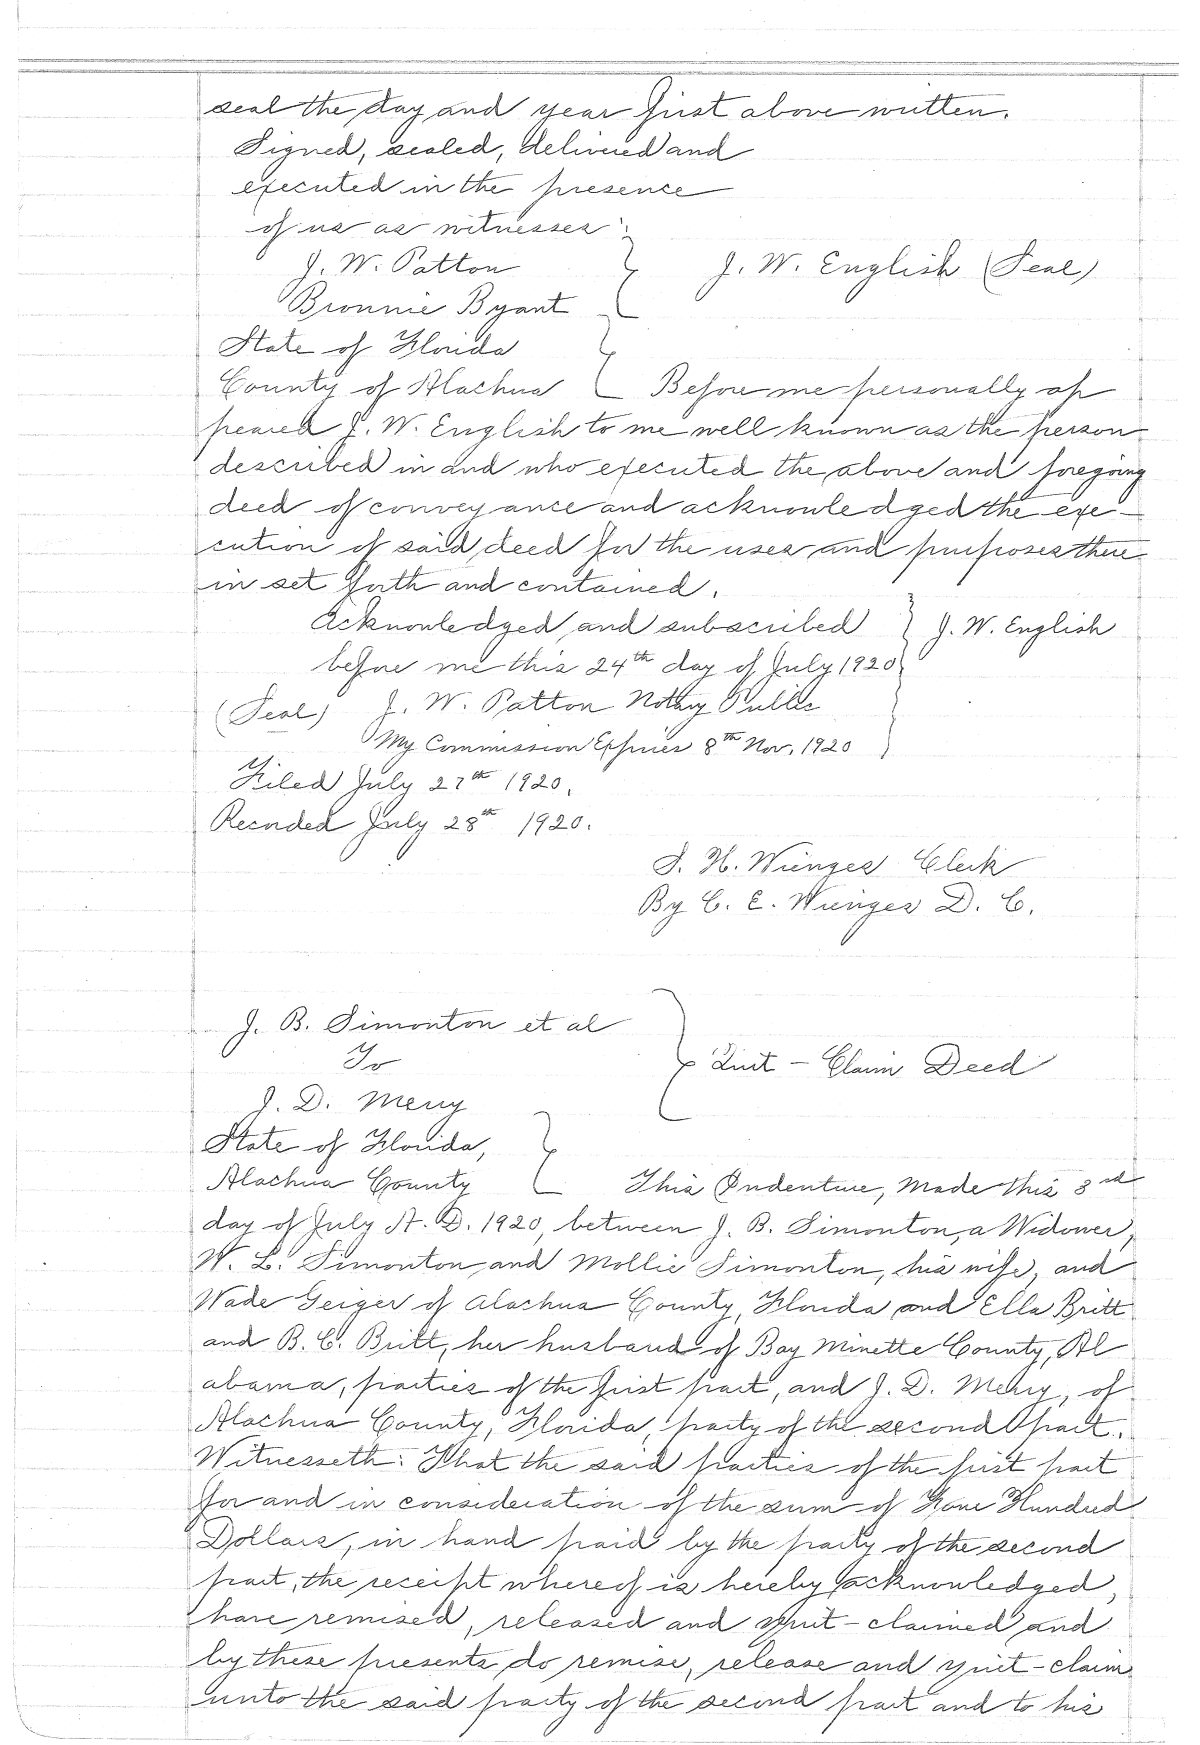 seal the day and year first above written.
Signed, sealed, delivered and
executed in the presence
of us as witnesses:
J. W. Patton
J. W. English (Seal)
Bronnie Byant
State of Florida
County of Alachua Before me personally ap
peared J. W. English to me well known as the person
described in and who executed the above and foregoing
deed of conveyance and acknowledged the exe-
cution of said deed for the uses and purposes there
in set forth and contained.
Acknowledged and subscribed J. W. English
before me this 24th day of July 1920
(Seal) J. W. Patton Notary Public
My Commission Expires 8th Nov. 1920
Filed July 27th 1920.
Recorded July 28th 1920.
S. H. Wienges Clerk
By C. E. Wienges D. C.
J. B. Simonton et al
To
Quit-Claim Deed
J. D. Merry
State of Florida,
Alachua County This Indenture, Made this 3rd
day of July A. D. 1920, between J. B. Simonton, a Widower,
W. L. Simonton and Mollie Simonton, his wife, and
Wade Geiger of Alachua County, Florida and Ella Britt
and B. C. Britt, her husband of Bay Minette County, Al
abama, parties of the first part, and J. D. Merry, of
Alachua County, Florida, party of the second part.
Witnesseth: That the said parties of the first part
for and in consideration of the sum of Hundred
Dollars, in hand paid by the party of the second
part, the receipt whereof is hereby acknowledged,
have remised, released and quit-claimed and
by these presents do remise, release and quit-claim
unto the said party of the second part and to his